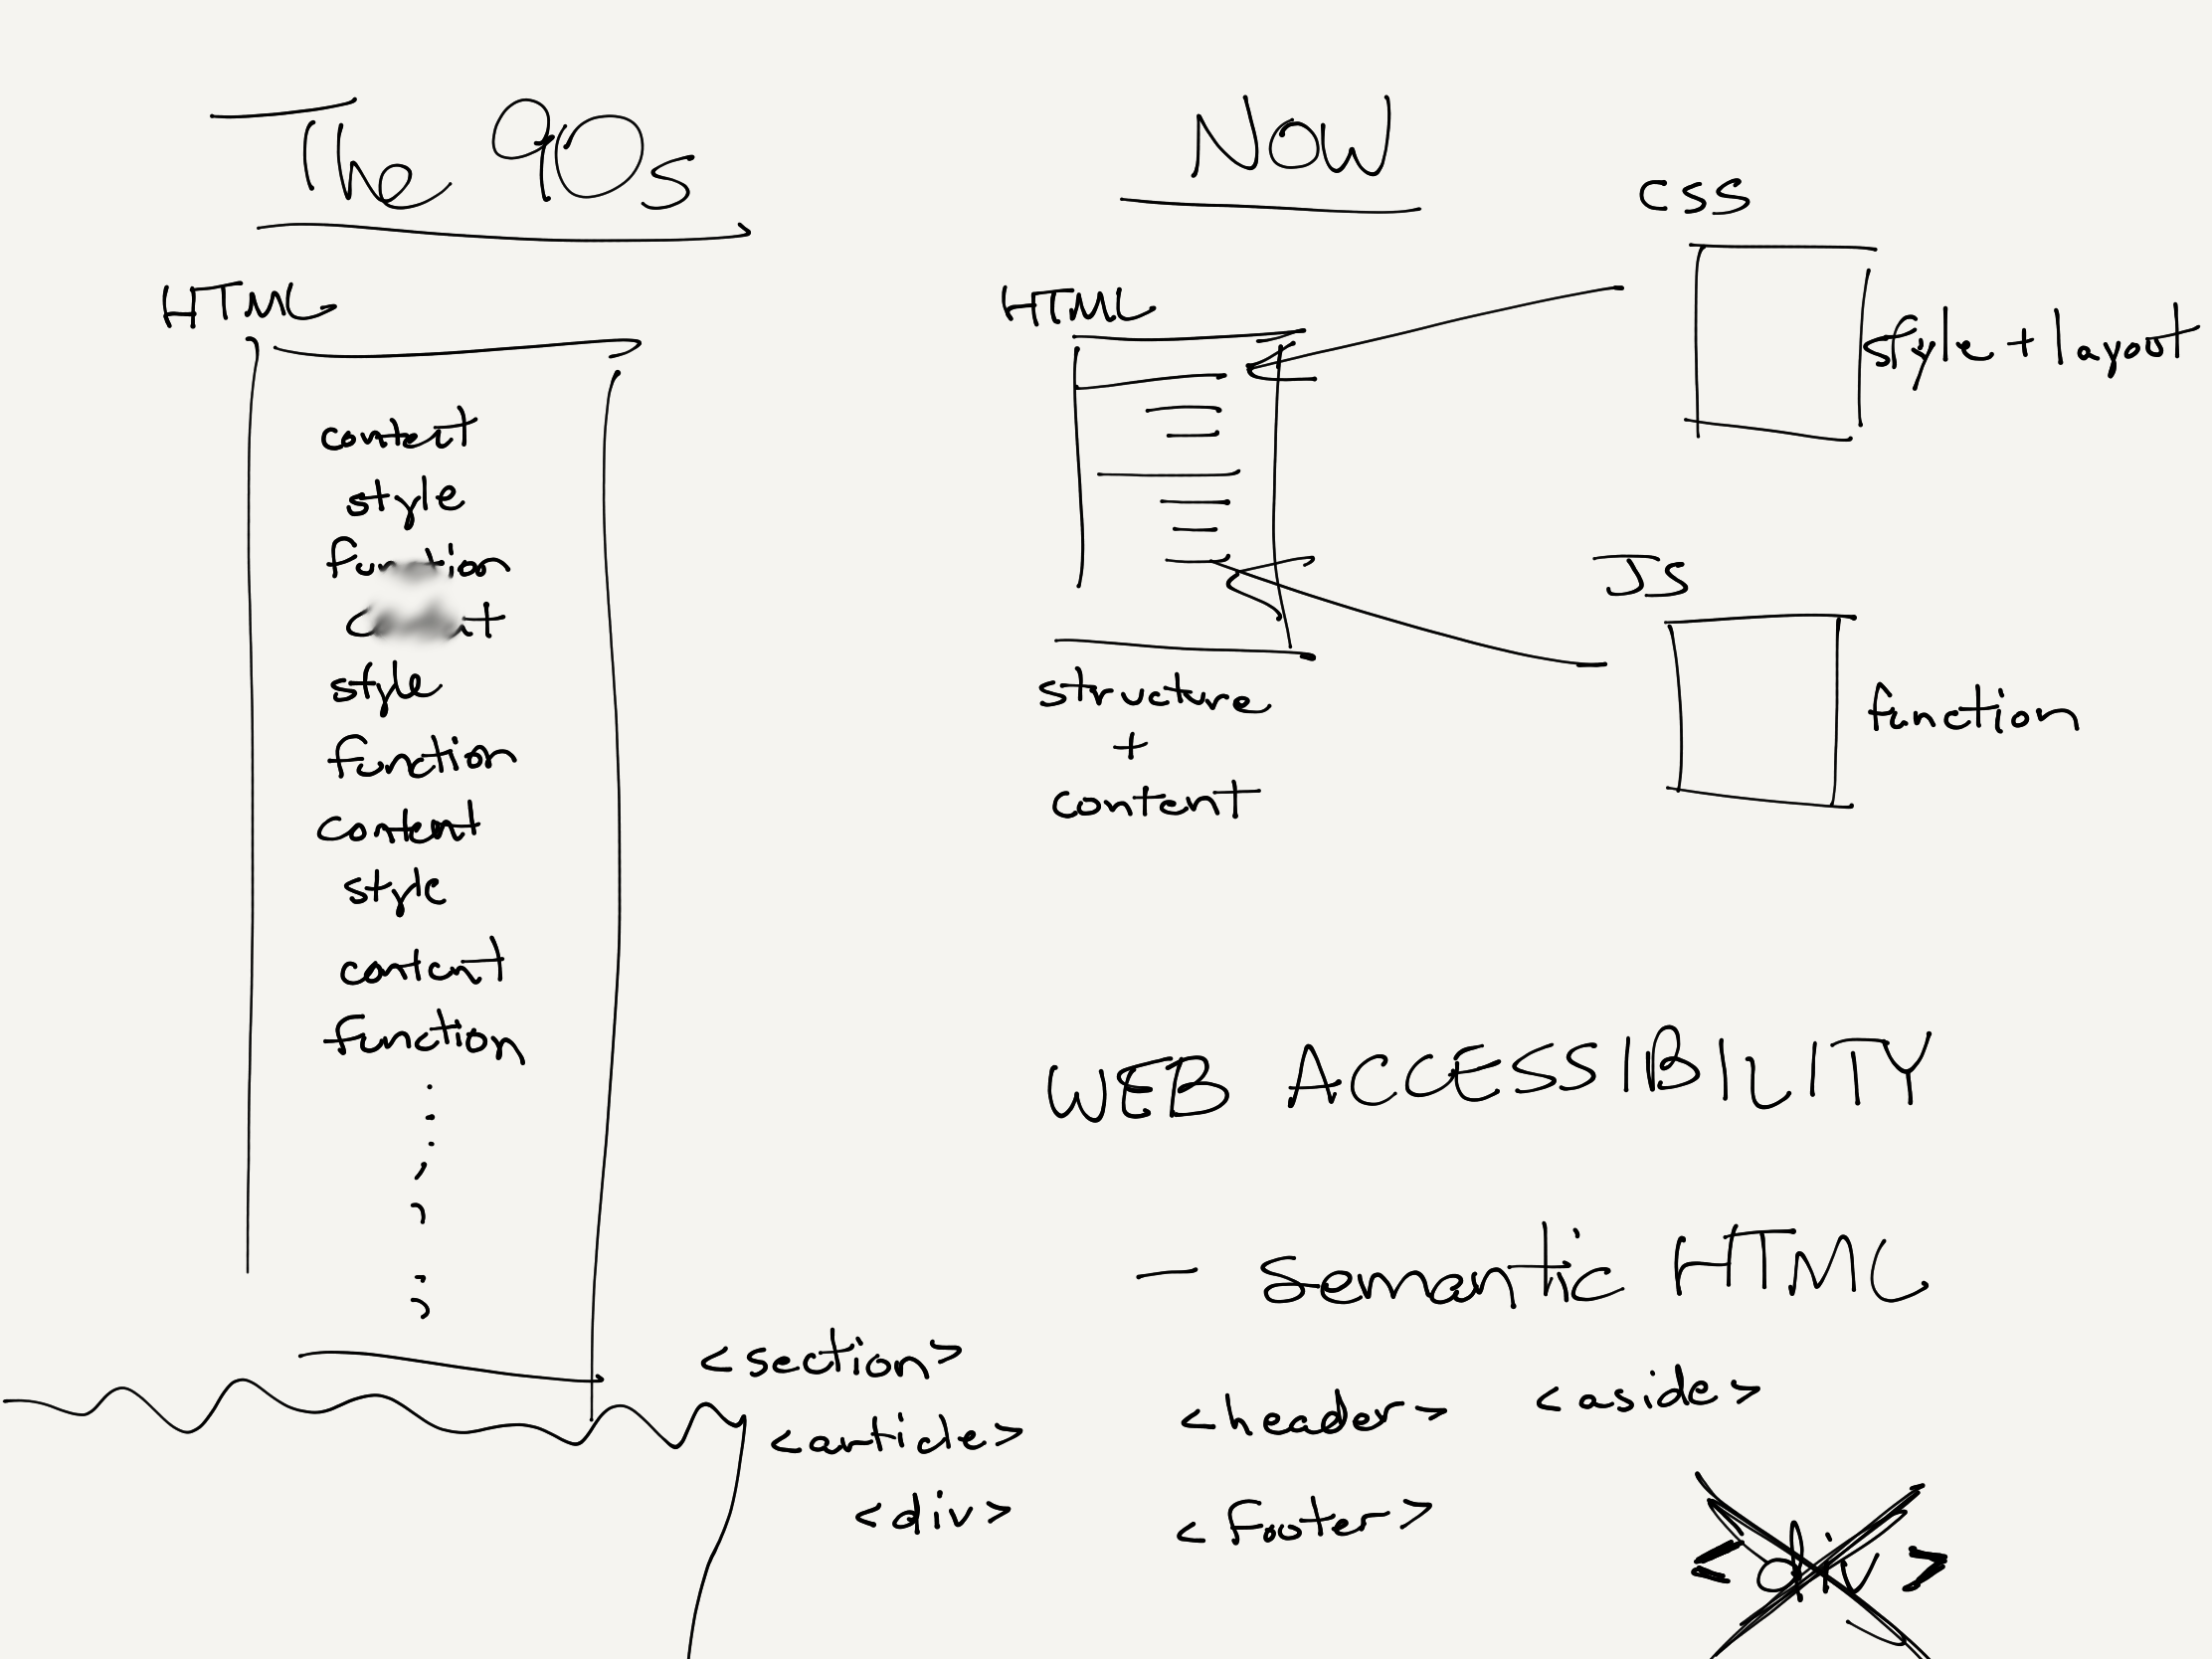 The 90s
HTML
content
style
function
style
function
content
style
content
function
NOW
HTML
structure
+
content
CSS
style + layout
JS
function
WEB ACCESSIBILITY
— Semantic HTML
<section>
<header> <aside>
<article>
<div>
<footer>
<div>